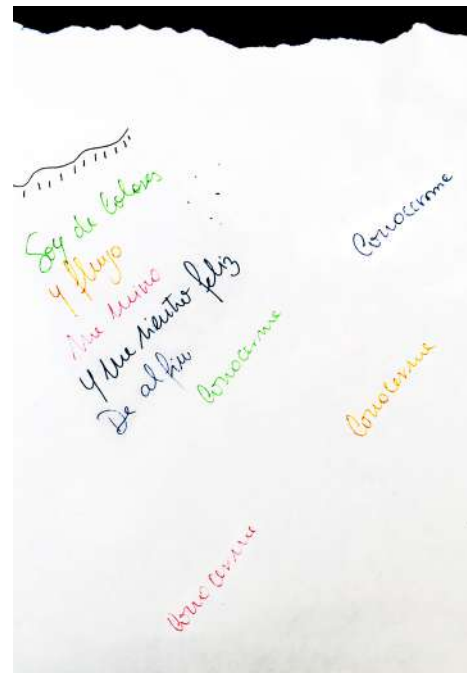 Soy de Colores
Y fluyo
Me miro
Y me siento feliz
De al fin
Conocerme
Conocerme
Conocerme
Conocerme